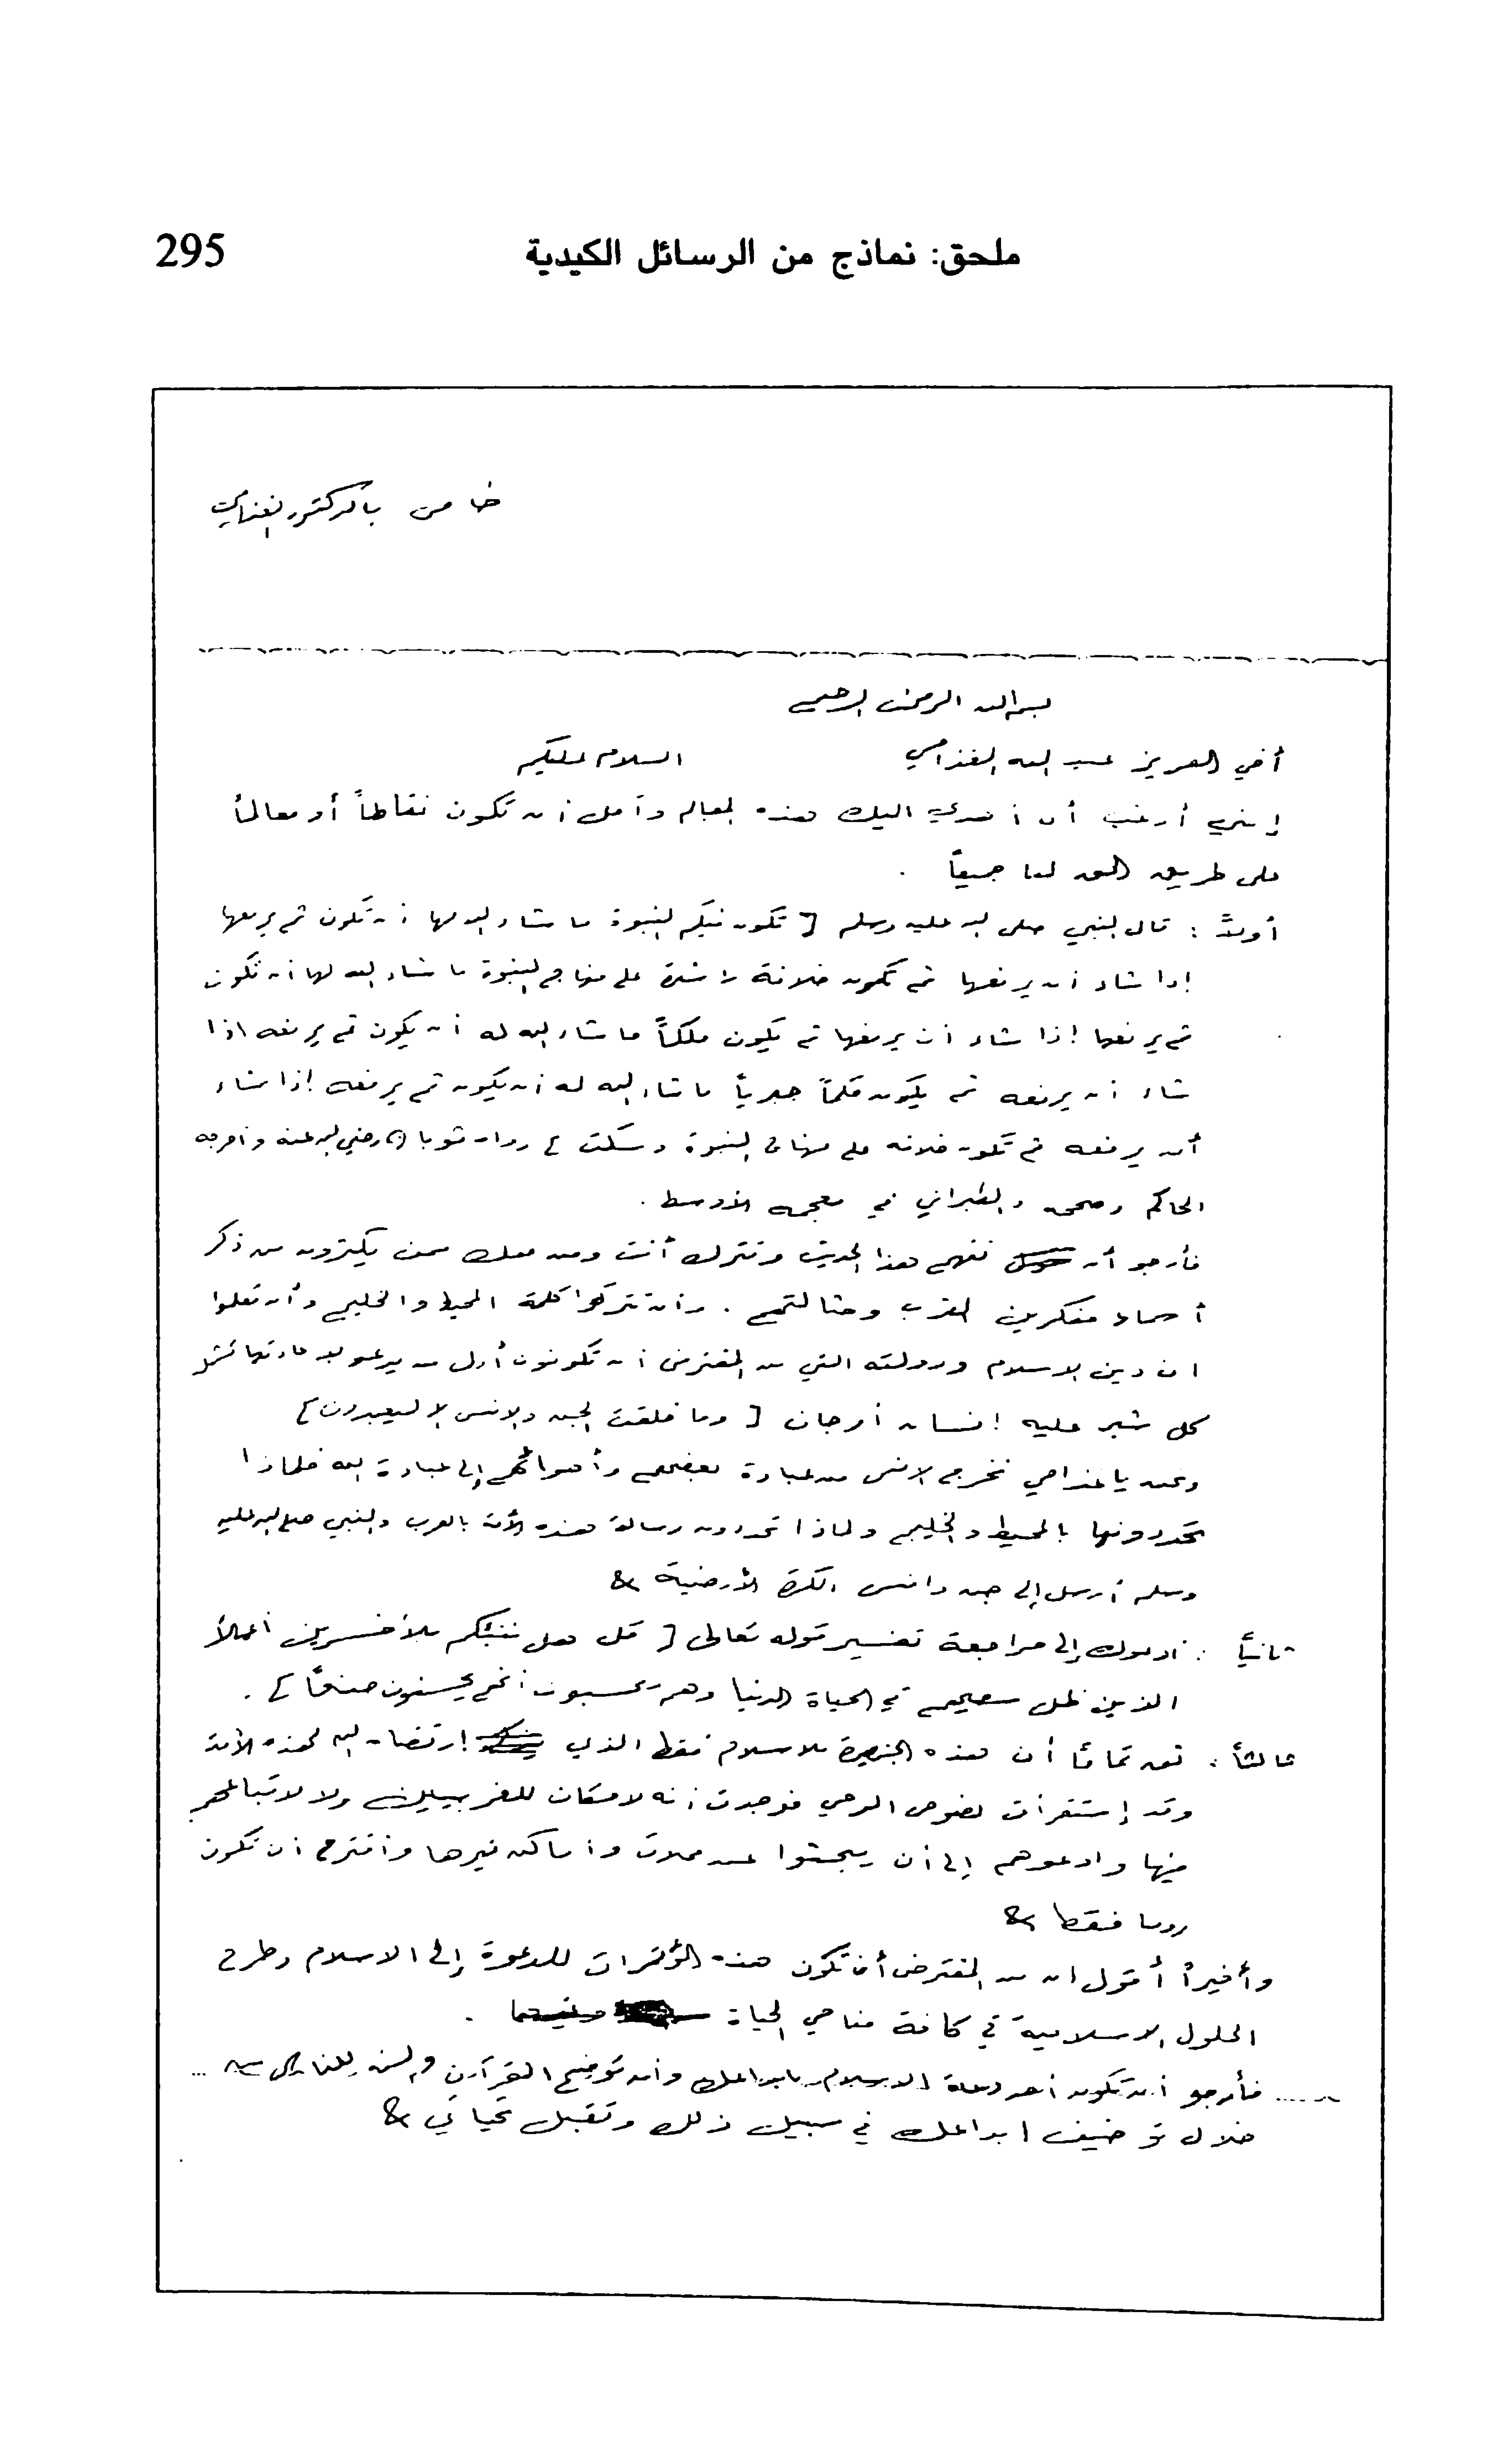 ملحق: نماذج من الرسائل الكيدية 295
خاص بالدكتور الغذامي
بسم الله الرحمن الرحيم
أخي العزيز عبد الله الغذامي السلام عليكم
إنني أرغب أن أهدي اليك هذه المعالم وآمل أن تكون نقاطاً أو معالماً
على طريق الحق لنا جميعاً .
أولاً : قال النبي صلى الله عليه وسلم [ تكون فيكم النبوة ما شاء الله لها أن تكون ثم يرفعها
إذا شاء أن يرفعها ثم تكون خلافة راشدة على منهاج النبوة ما شاء الله لها أن تكون
ثم يرفعها إذا شاء أن يرفعها ثم يكون ملكاً ما شاء الله له أن يكون ثم يرفعه اذا
شاء أن يرفعه ثم يكون جبرياً ما شاء الله له أن يكون ثم يرفعه إذا شاء
أن يرفعه ثم تكون خلافة على منهاج النبوة وسكت ] رواه ثوبان رضي الله عنه وأخرجه
الحاكم وصححه والطبراني في معجمه الأوسط .
فأرجو أن تفهم هذا الحديث وتترك أنت ومن معك ممن يكثرون من ذكر
أسماء مفكرين الغرب وحثالتهم . وأن تتركوا كلمة المحيط والخليج وأن تعلموا
ان دين الاسلام ودولته التي من المفترض أن تكونون أول من يدعو لإعادتها تشمل
كل شبر عليه إنسان أو جان [ وما خلقت الجن والإنس إلا ليعبدون ]
ونحن يا غذامي نخرج الانس من عبادة بعضهم وأهوائهم إلى عبادة الله فلماذا
تحددونها بالمحيط والخليج ولماذا تحددون رسالة هذه الأمة بالعرب والنبي صلى الله عليه
وسلم أرسل إلى جن وانس الكرة الأرضية
ثانياً : أدعوك إلى مراجعة تفسير قوله تعالى [ قل هل ننبئكم بالأخسرين أعمالاً
الذين ضل سعيهم في الحياة الدنيا وهم يحسبون أنهم يحسنون صنعاً ] .
ثالثاً : ثق تماماً أن هذه الجزيرة للاسلام فقط الذي إرتضاه الله لهذه الأمة
وقد إستقرأت نصوص الوحي فوجدت أنه لا مكان للغربيين ولا لاتباعهم
فيها وادعوهم إلى أن يبحثوا عن محلات وأماكن غيرها وأقترح أن تكون
روما فقط
وأخيراً أقول ان من المفترض أن تكون هذه المؤتمرات للدعوة إلى الاسلام وطرح
الحلول الاسلامية في كافة مناحي الحياة .
..... فأرجو أن تكون أحد دعاة الاسلام بابداعك وأن توضح القرآن والسنة للناس من ...
خلال توضيف ابداعك في سبيل ذلك وتقبل تحياتي